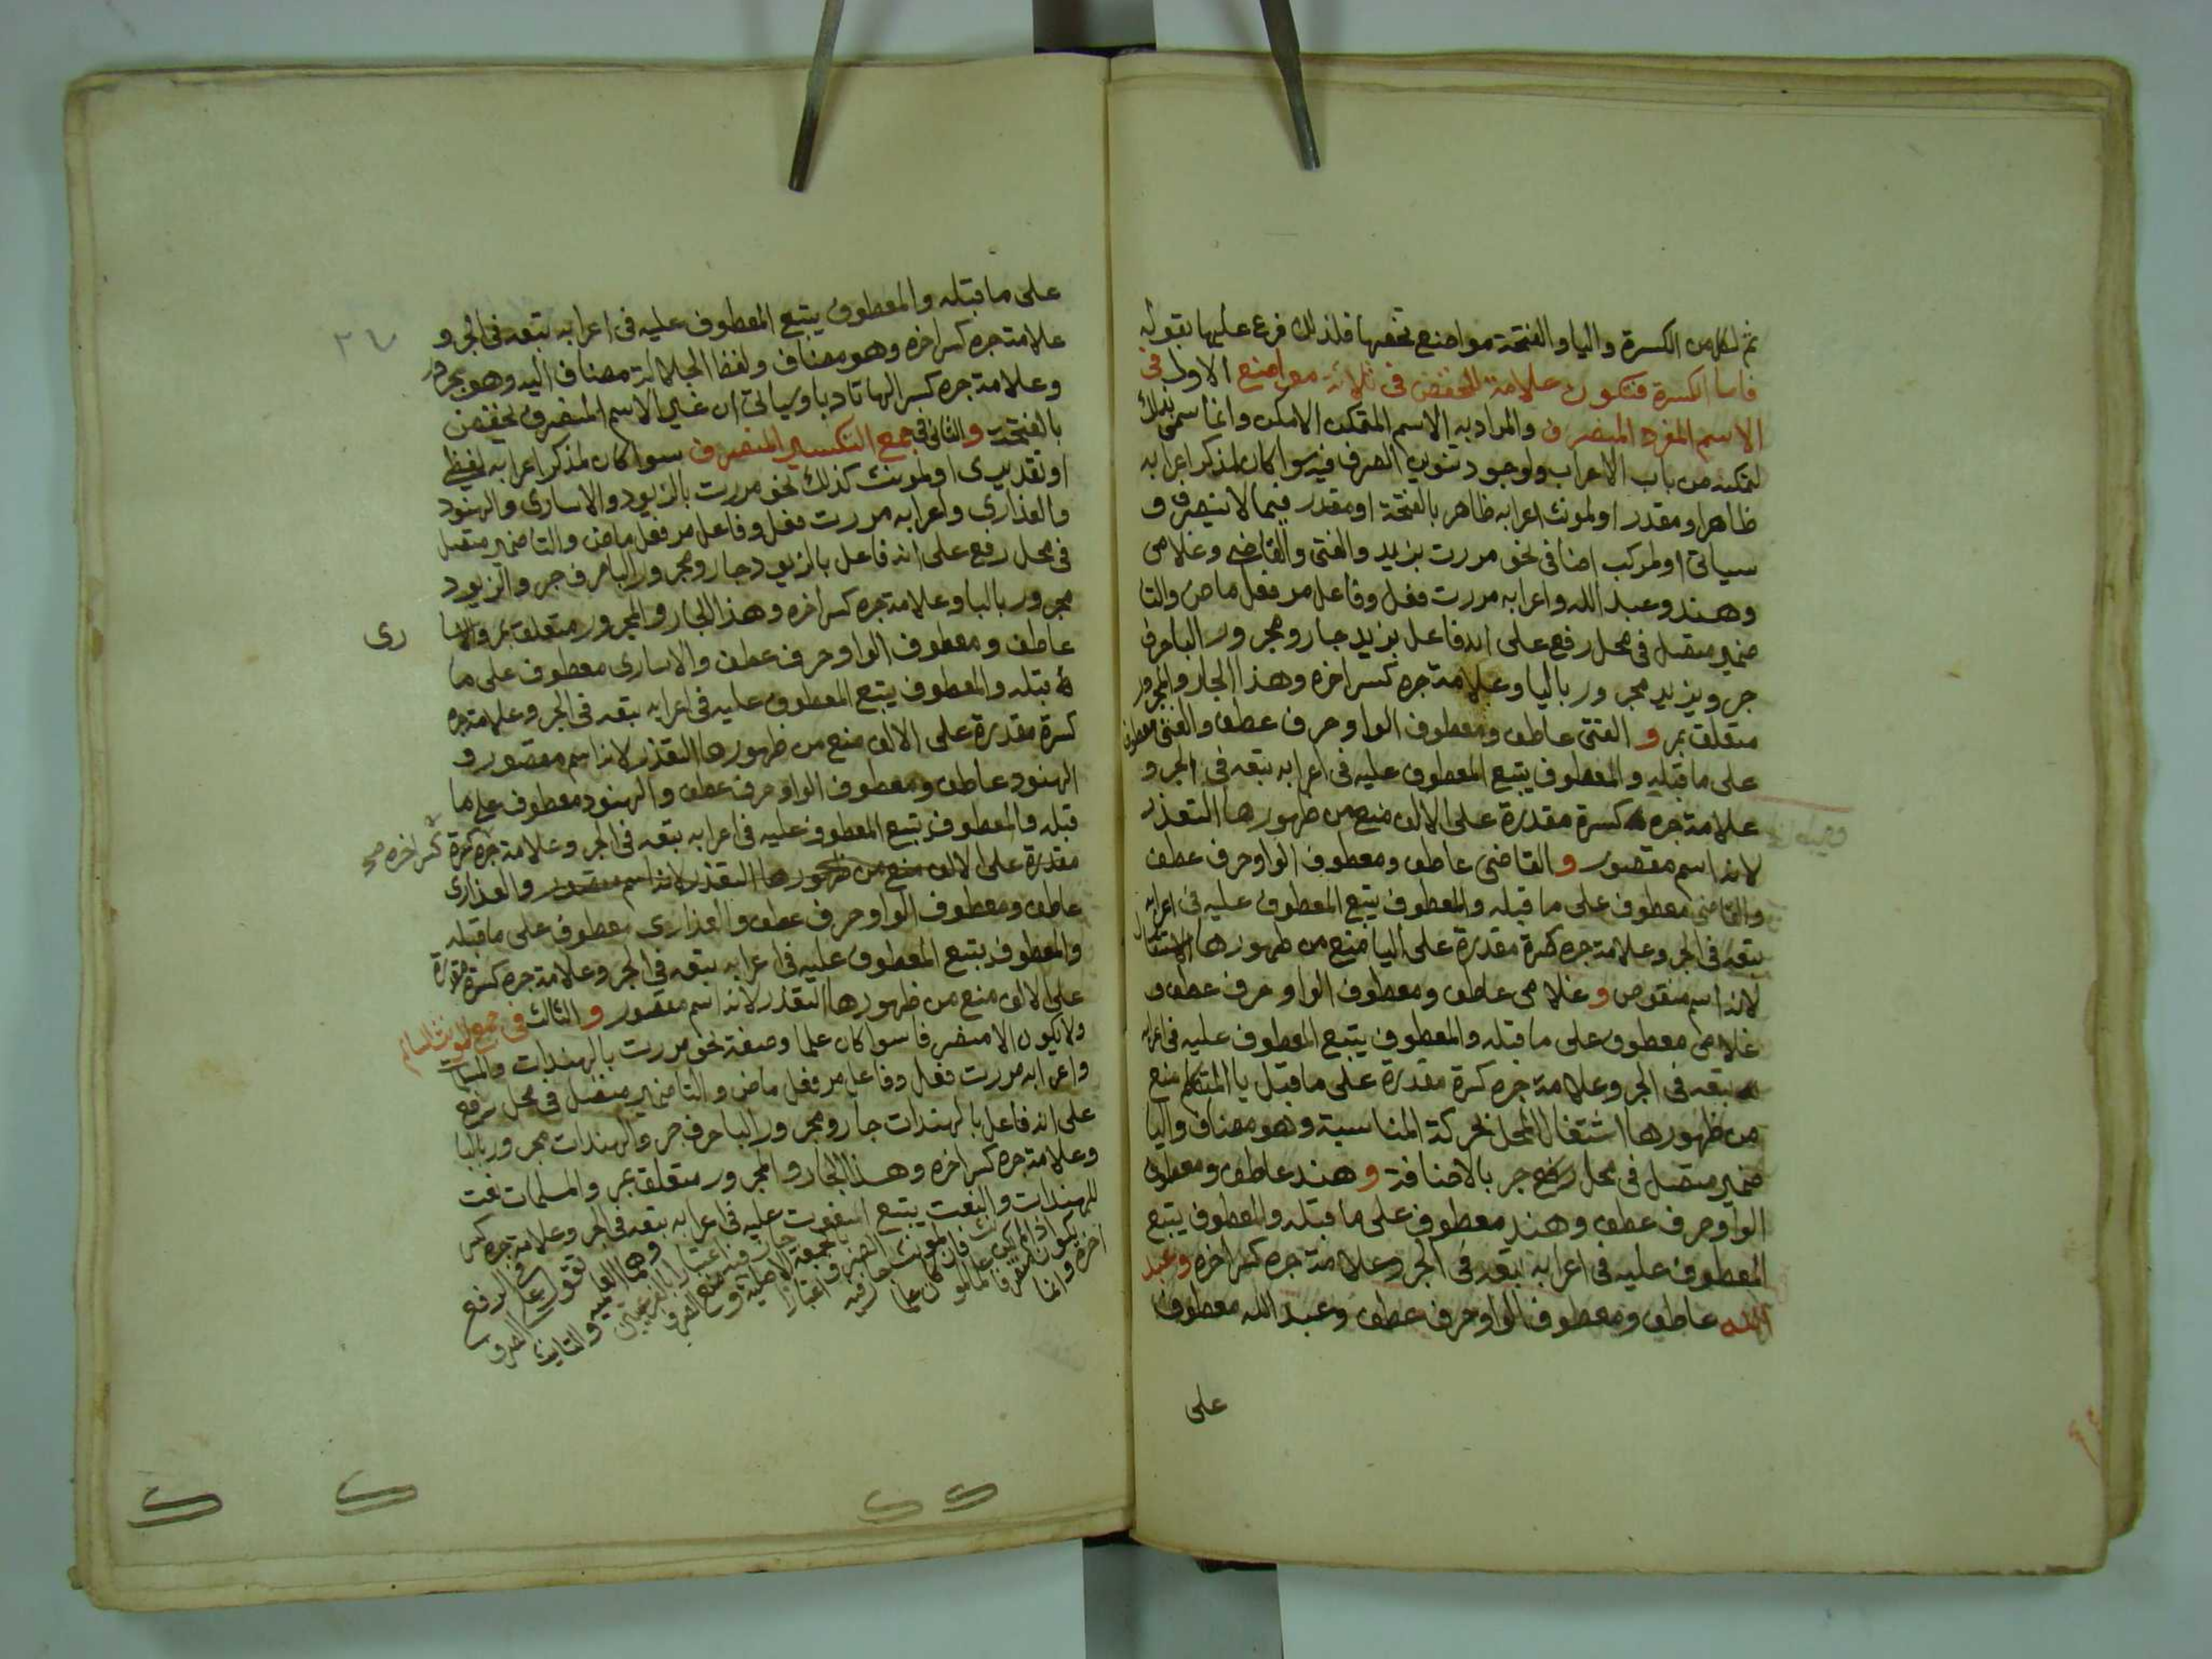 ثم لكل من الكسرة واليا والفتحة مواضع تخصها فلذلك فرع عليها بقوله
فاما الكسرة فتكون علامة للخفض في ثلاثة مواضع الاول في
الاسم المفرد المنصرف والمراد به الاسم المتمكن الامكن وانما سمى بذلك
لتمكنه من باب الاعراب ولوجود تنوين الصرف فيه سوا كان لمذكر اعرابه
ظاهر او مقدر او لمونث اعرابه ظاهر بالفتحة او مقدر فيما لا ينصرف و
سياتي او لمركب اضافي نحو مررت بزيد والفتى والقاضي وغلامي
وهند وعبد الله واعرابه مررت فعل وفاعل مر فعل ماض والتا
ضمير متصل في محل رفع على انه فاعل بزيد جار ومجرور البا حرف
جر وبزيد مجرور باليا وعلامة جره كسر اخره وهذا الجار والمجرور
متعلق بمر والفتى عاطف ومعطوف الواو حرف عطف والفتى معطوف
على ما قبله والمعطوف يتبع المعطوف عليه في اعرابه تبعه في الجر و
علامة جره كسرة مقدرة على الالف منع من ظهورها التعذر
لانه اسم مقصور والقاضي عاطف ومعطوف الواو حرف عطف
والقاضي معطوف على ما قبله والمعطوف يتبع المعطوف عليه في اعرابه
تبعه في الجر وعلامة جره كسرة مقدرة على اليا منع من ظهورها الاستثقال
لانه اسم منقوص وغلامي عاطف ومعطوف الواو حرف عطف و
غلامي معطوف على ما قبله والمعطوف يتبع المعطوف عليه في اعرابه
تبعه في الجر وعلامة جره كسرة مقدرة على ما قبل يا المتكلم منع
من ظهورها اشتغال المحل بحركة المناسبة وهو مضاف واليا
ضمير متصل في محل جر بالاضافة وهند عاطف ومعطوف
الواو حرف عطف وهند معطوف على ما قبله والمعطوف يتبع
المعطوف عليه في اعرابه تبعه في الجر وعلامة جره كسر اخره وعبد
الله عاطف ومعطوف الواو حرف عطف وعبد الله معطوف
على
على ما قبله والمعطوف يتبع المعطوف عليه في اعرابه تبعه في الجر و
علامة جره كسر اخره وهو مضاف ولفظ الجلالة مضاف اليه وهو مجرور
وعلامة جره كسر الها تادبا وسياتي ان غير الاسم المنصرف يخفض
بالفتحة والثاني في جمع التكسير المنصرف سوا كان لمذكر اعرابه لفظي
او تقديري او لمونث كذلك نحو مررت بالزيود والاسارى والهنود
والعذارى واعرابه مررت فعل وفاعل مر فعل ماض والتا ضمير متصل
في محل رفع على انه فاعل بالزيود جار ومجرور البا حرف جر والزيود
مجرور بالبا وعلامة جره كسر اخره وهذا الجار والمجرور متعلق بمر والاسا
رى
عاطف ومعطوف الواو حرف عطف والاسارى معطوف على ما
قبله والمعطوف يتبع المعطوف عليه في اعرابه تبعه في الجر وعلامة جره
كسرة مقدرة على الالف منع من ظهورها التعذر لانه اسم مقصور و
الهنود عاطف ومعطوف الواو حرف عطف والهنود معطوف على ما
قبله والمعطوف يتبع المعطوف عليه في اعرابه تبعه في الجر وعلامة جره كسرة
كسر اخره صح
مقدرة على الالف منع من ظهورها التعذر لانه اسم مقصور والعذارى
عاطف ومعطوف الواو حرف عطف والعذارى معطوف على ما قبله
والمعطوف يتبع المعطوف عليه في اعرابه تبعه في الجر وعلامة جره كسرة مقدرة
على الالف منع من ظهورها التعذر لانه اسم مقصور والثالث في جمع المونث السالم
ولا يكون الا منصرفا سوا كان علما او صفة نحو مررت بالهندات والمسلمات
واعرابه مررت فعل وفاعل مر فعل ماض والتا ضمير متصل في محل رفع
على انه فاعل بالهندات جار ومجرور البا حرف جر والهندات مجرور بالبا
وعلامة جره كسر اخره وهذا الجار والمجرور متعلق بمر والمسلمات نعت
للهندات والنعت يتبع المنعوت عليه في اعرابه تبعه في الجر وعلامة جره كسر
اخره وانما